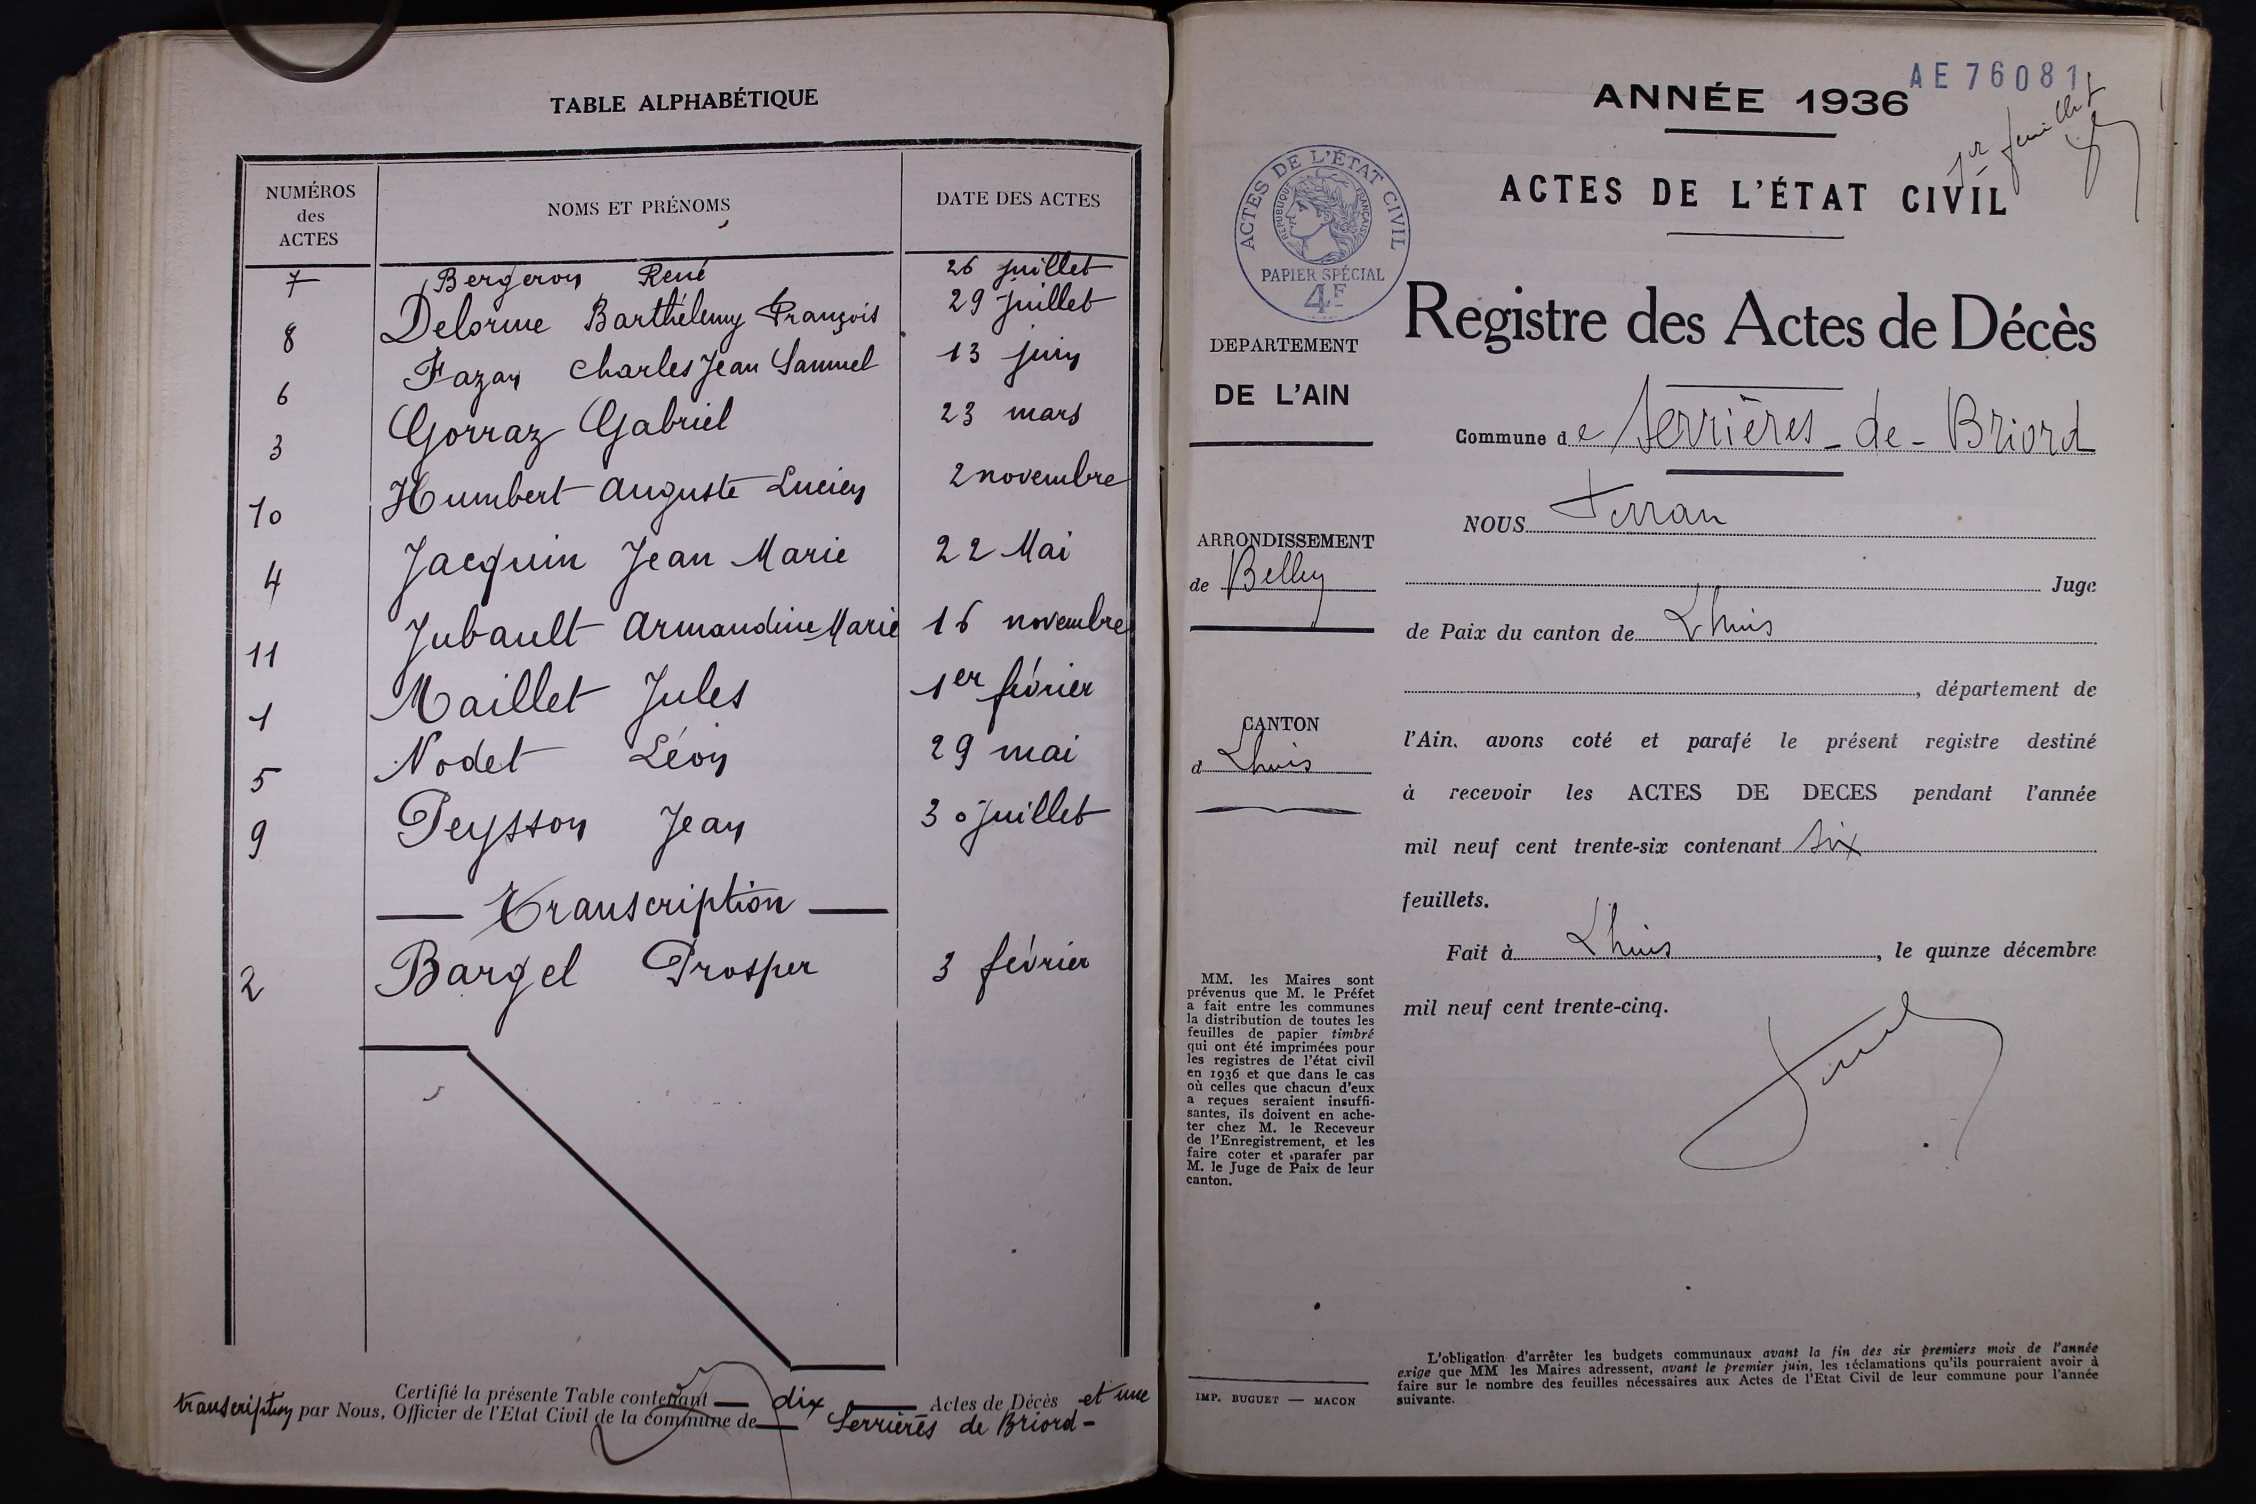 TABLE ALPHABÉTIQUE
NUMÉROS
des
ACTES
NOMS ET PRÉNOMS
DATE DES ACTES
7 Bergeron René 26 juillet
8 Delorme Barthélemy François 29 juillet
6 Fazan Charles Jean Samuel 13 juin
3 Gorraz Gabriel 23 mars
10 Humbert Auguste Lucien 2 novembre
4 Jacquin Jean Marie 22 Mai
11 Jubault Armandine Marie 16 novembre
1 Maillet Jules 1er février
5 Nodet Léon 29 mai
9 Peysson Jean 30 juillet
— Transcription —
2 Bargel Prosper 3 février
Certifié la présente Table contenant — dix — Actes de Décès et une
transcription par Nous, Officier de l'Etat Civil de la commune de — Serrières de Briord -
AE 76081
1er feuillet
ANNÉE 1936
ACTES DE L'ÉTAT CIVIL
ACTES DE L'ÉTAT CIVIL
RÉPUBLIQUE FRANÇAISE
PAPIER SPÉCIAL
4F
Registre des Actes de Décès
DEPARTEMENT
DE L'AIN
Commune de Serrières-de-Briord
NOUS Ferran
ARRONDISSEMENT
de Belley
Juge
de Paix du canton de Lhuis
, département de
CANTON
d Lhuis
l'Ain. avons coté et parafé le présent registre destiné
à recevoir les ACTES DE DECES pendant l'année
mil neuf cent trente-six contenant six
feuillets.
Fait à Lhuis, le quinze décembre
mil neuf cent trente-cinq.
MM. les Maires sont
prévenus que M. le Préfet
a fait entre les communes
la distribution de toutes les
feuilles de papier timbré
qui ont été imprimées pour
les registres de l'état civil
en 1936 et que dans le cas
où celles que chacun d'eux
a reçues seraient insuffi-
santes, ils doivent en ache-
ter chez M. le Receveur
de l'Enregistrement, et les
faire coter et parafer par
M. le Juge de Paix de leur
canton.
IMP. BUGUET — MACON
L'obligation d'arrêter les budgets communaux avant la fin des six premiers mois de l'année
exige que MM les Maires adressent, avant le premier juin, les réclamations qu'ils pourraient avoir à
faire sur le nombre des feuilles nécessaires aux Actes de l'Etat Civil de leur commune pour l'année
suivante.